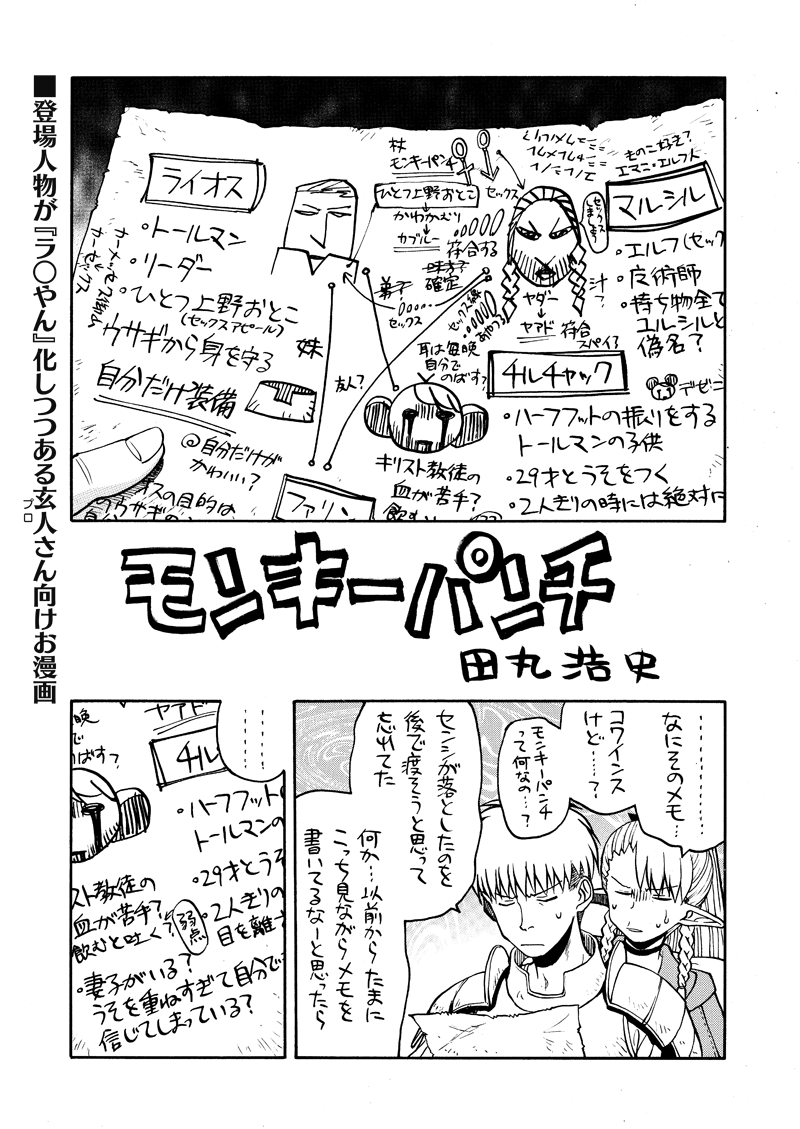 ■登場人物が『ラ○やん』化しつつある玄人さん向けお漫画
プロ
ものこ好き？
エマニ・エルフ人
マルシル
・エルフ(セック
・魔術師
・持ち物全て
ユルシルと
偽名？
セックスしまーす
汁？
杖
モンキーパンチ
ひとつ上野おとこ
かわかむり
カブルー
セックス
符合する
確定
弟子？
セックス
ヤダー
ヤアド
符合
スパイ？
あやつる
ライオス
・トールマン
・リーダー
・ひとつ上野おとこ
(セックスアピール)
ウサギから身を守る
自分だけ装備
@自分だけが
かわいい？
カーセックス
妹
友人？
耳は毎晩
自分で
のばすっ
チルチャック
デゼニ
・ハーフフットの振りをする
トールマンの子供
・29才とうそをつく
・2人きりの時には絶対に
キリスト教徒の
血が苦手？
飲む
ファリン
スの目的は
ウサギの
モンキーパンチ
田丸浩史
なにそのメモ…
………
コワインスけど……？
モンキーパンチって何なの…？
センシが落としたのを
後で渡そうと思って
忘れてた
何か…以前からたまに
こっち見ながらメモを
書いてるなーと思ったら
………
ヤアド
晩
で
のばすっ
チル
・ハーフフット
トールマンの
・29才とうそ
・2人きりの
目を離す
スト教徒の
血が苦手？
飲むと吐く？
弱点
・妻子がいる？
うそを重ねすぎて自分で
信じてしまっている？